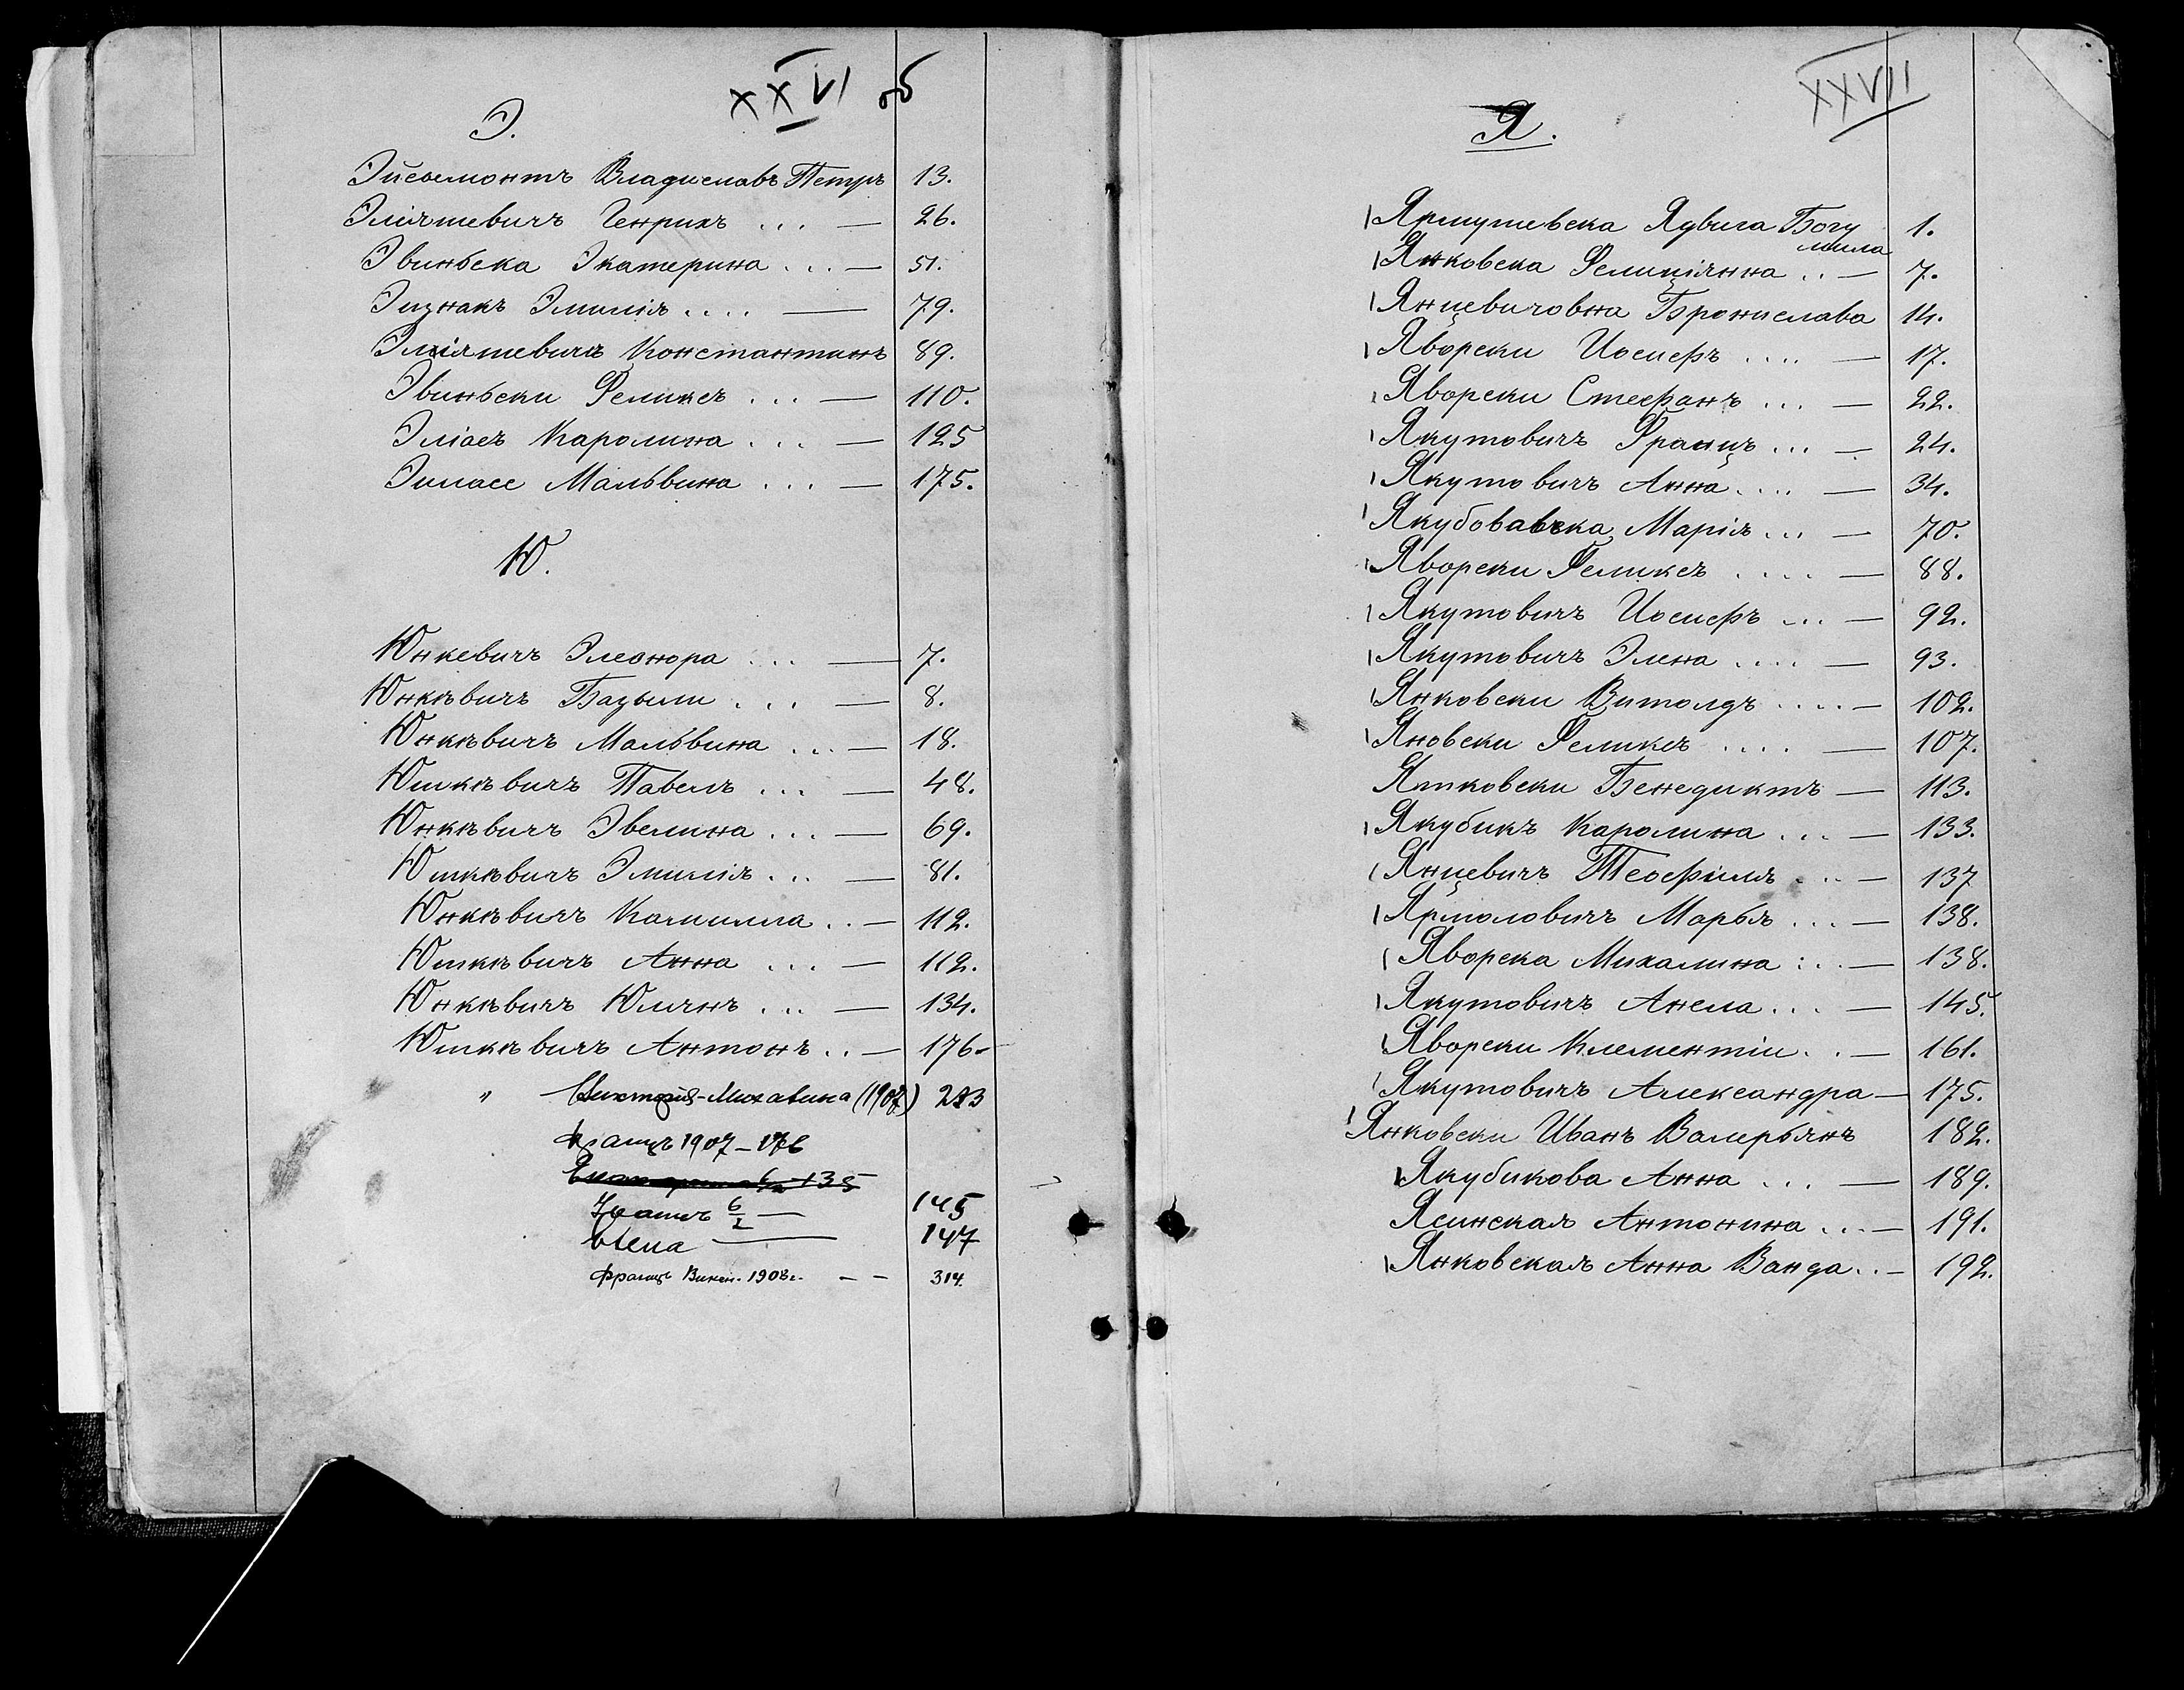 XXVI об
Э.
Эйсымонтъ Владиславъ Петръ 13.
Эліяшевичъ Генрихъ ... — 26.
Эвиньска Экатерина ... — 51.
Эизнакъ Эмилія .... — 79.
Эліяшевичъ Константинъ 89.
Эвиньски Феликсъ ... — 110.
Эліасъ Каролина ... — 125
Эиласс Мальвина ... — 175.
Ю.
Юнкевичъ Элеонора ... — 7.
Юнкѣвичъ Базыли ... — 8.
Юнкѣвичъ Мальвина ... — 18.
Юшкѣвичъ Павелъ ... — 48.
Юнкѣвичъ Эвелина ... — 69.
Юшкѣвичъ Эмилія ... — 81.
Юнкѣвичъ Камилла .. — 112.
Юшкѣвичъ Анна ... — 112.
Юнкѣвичъ Юлянъ ... — 134.
Юшкѣвичъ Антонъ .. — 176.
" Викторія-Михалина (1907) 293
Францъ 1907 — 176
135
6/2 — 145
Елена — 147
Францъ Викен. 1908г. — — 314.
XXVII
Я.
Ярмушевска Ядвига Богу 1.
мила
Янковска Фелиціянна .. — 7.
Янцевичовна Бронислава 14.
Яворски Иосифъ .... — 17.
Яворски Стефанъ ... — 22.
Якутовичъ Францъ ... — 24.
Якутовичъ Анна .... — 34.
Якубовавска Марія ... — 70.
Яворски Феликсъ .... — 88.
Якутовичъ Иосифъ ... — 92.
Якутовичъ Элена .... — 93.
Янковски Витолдъ .... — 102.
Яновски Феликсъ .... — 107.
Ятковски Бенедиктъ — 113.
Якубикъ Каролина ... — 133.
Янцевичъ Теофиля ... — 137
Ярмоловичъ Марья ... — 138.
Яворска Михалина ... — 138.
Якутовичъ Анела ... — 145.
Яворски Клементіи .. — 161.
Якутовичъ Александра — 175.
Янковски Иванъ Валерьянъ 182.
Якубикова Анна ... — 189.
Ясинская Антонина ... — 191.
Янковская Анна Ванда .. — 192.